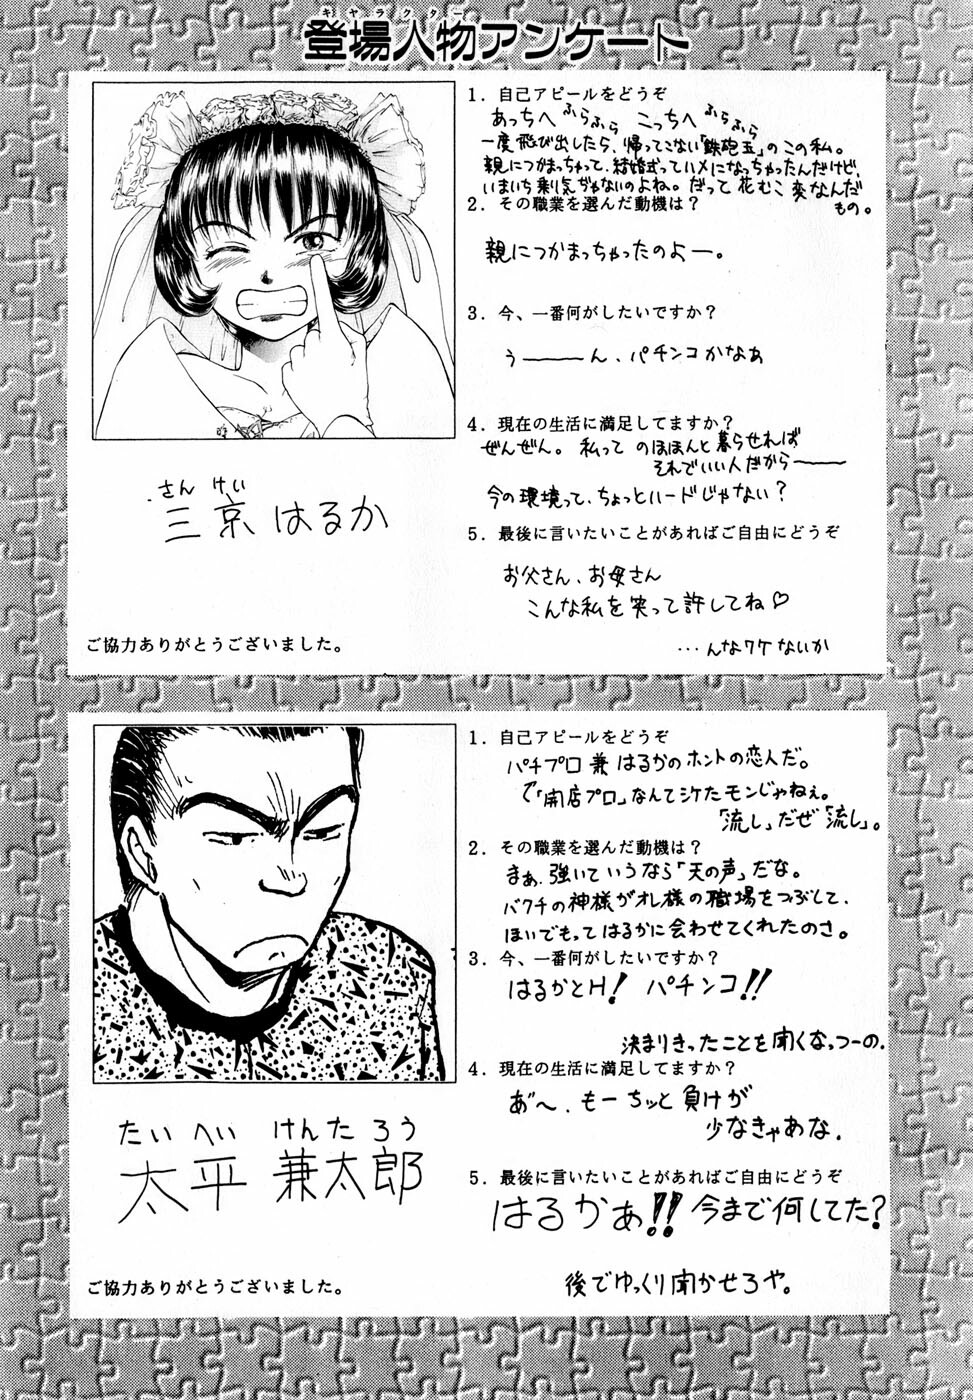 キャラクター
登場人物アンケート
1．自己アピールをどうぞ
あっちへ ふらふら こっちへ ふらふら
一度飛び出したら、帰ってこない「鉄砲玉」のこの私。
親につかまっちゃって、結婚式ってハメになっちゃったんだけど、
いまいち乗り気がないのよね。だって花むこ変なんだ
もの。
2．その職業を選んだ動機は？
親につかまっちゃったのよー。
3．今、一番何がしたいですか？
う———ん、パチンコかなあ
4．現在の生活に満足してますか？
ぜんぜん。私って のほほんと暮らせれば
それでいい人だから———
今の環境って、ちょっとハードじゃない？
5．最後に言いたいことがあればご自由にどうぞ
お父さん、お母さん
こんな私を笑って許してね♡
…んなワケないか
さん けい
三京はるか
ご協力ありがとうございました。
1．自己アピールをどうぞ
パチプロ兼はるかのホントの恋人だ。
で「開店プロ」なんてシケたモンじゃねぇ。
「流し」だぜ「流し」。
2．その職業を選んだ動機は？
まぁ、強いていうなら「天の声」だな。
バクチの神様がオレ様の職場をつぶして、
ほいでもってはるかに会わせてくれたのさ。
3．今、一番何がしたいですか？
はるかとH！ パチンコ!!
決まりきったことを聞くなっつーの.
4．現在の生活に満足してますか？
あ゛〜、もーちッと負けが
少なきゃあな.
5．最後に言いたいことがあればご自由にどうぞ
はるかぁ!! 今まで何してた？
後でゆっくり聞かせろや。
たいへい けんたろう
太平 兼太郎
ご協力ありがとうございました。